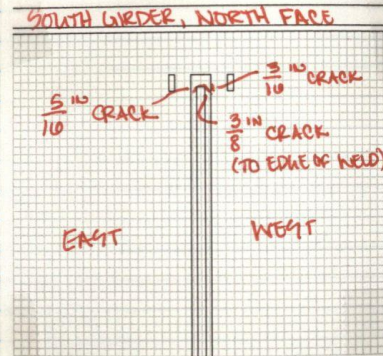 SOUTH GIRDER, NORTH FACE
3/16 IN CRACK
5/16 IN CRACK
3/8 IN CRACK
(TO EDGE OF WELD)
EAST
WEST